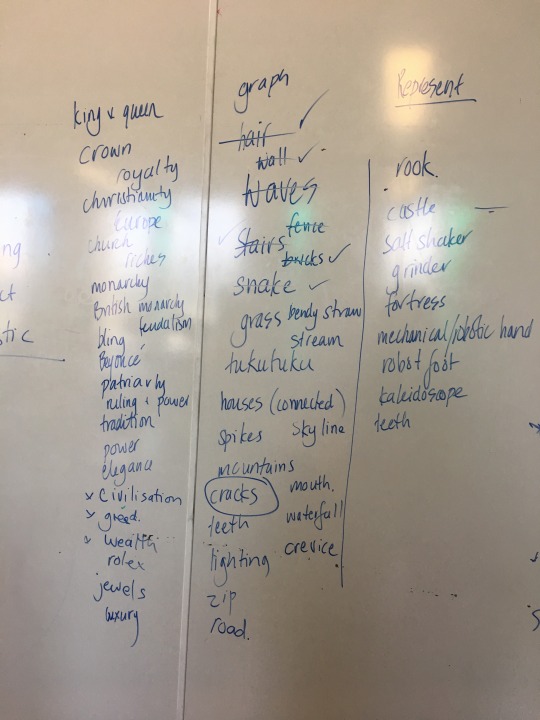 ng
ct
stic
king & queen
crown
royalty
christianity
Europe
church
riches
monarchy
British monarchy
feudalism
bling
Beyoncé
patriarchy
ruling + power
tradition
power
elegance
x civilisation
x greed.
x wealth
rolex
jewels
luxury
graph
hair ✓
wall ✓
waves
fence
✓ stairs
bricks ✓
snake ✓
grass bendy straw
stream
tukutuku
houses (connected)
spikes skyline
mountains
cracks mouth.
teeth waterfall
lighting crevice
zip
road.
Represent
rook.
castle —
salt shaker
grinder
fortress
mechanical/robotic hand
robot foot
kaleidoscope
teeth